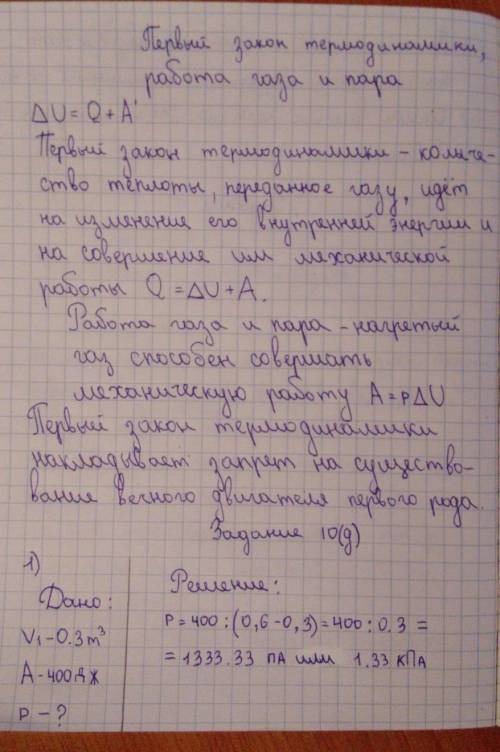 Первый закон термодинамики,
работа газа и пара
ΔU = Q + A'
Первый закон термодинамики – количе-
ство теплоты, переданное газу, идёт
на изменение его внутренней энергии и
на совершение им механической
работы Q = ΔU + A.
Работа газа и пара – нагретый
газ способен совершать
механическую работу A = pΔU
Первый закон термодинамики
накладывает запрет на существо-
вание вечного двигателя первого рода.
Задание 10(д)
1)
Дано:
V₁ – 0.3 m³
A – 400 Дж
p – ?
Решение:
P = 400 : (0,6 – 0,3) = 400 : 0.3 =
= 1333.33 ПА или 1.33 кПа